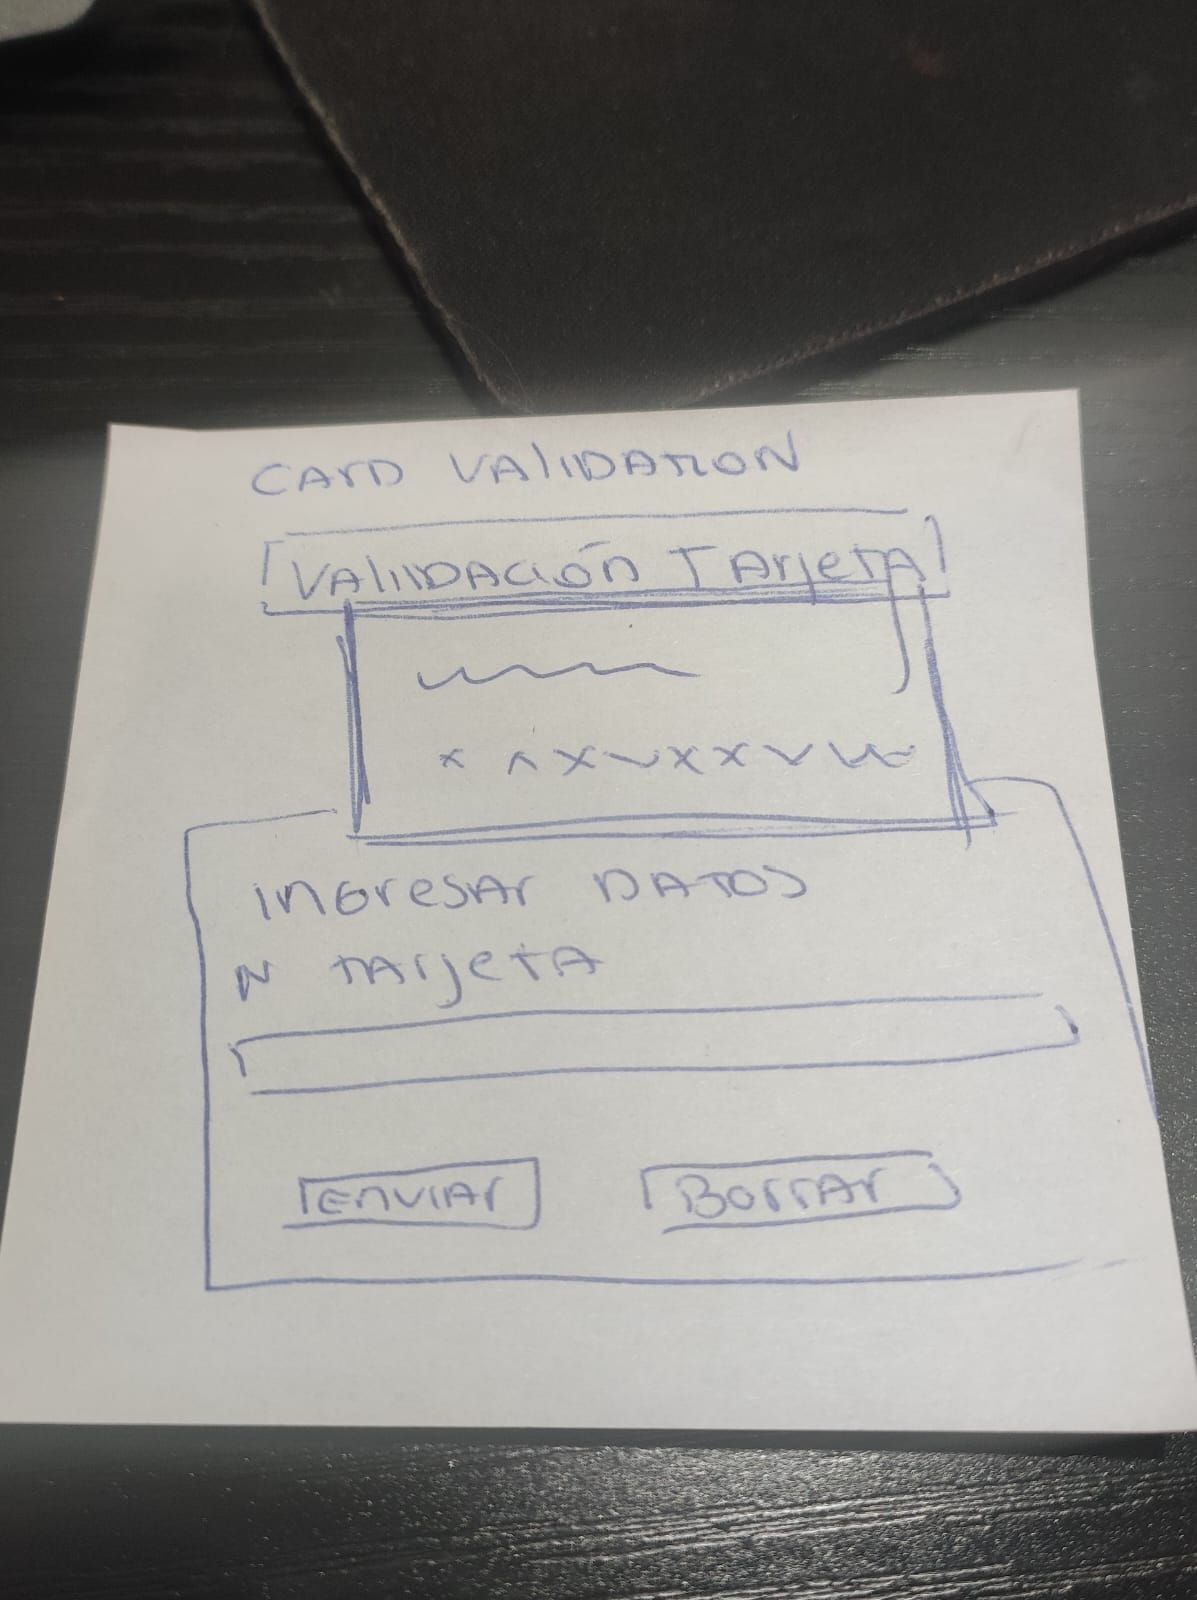 CARD VALIDATION
VALIDACIÓN TARJETA
INGRESAR DATOS
N TARJETA
ENVIAR
BORRAR